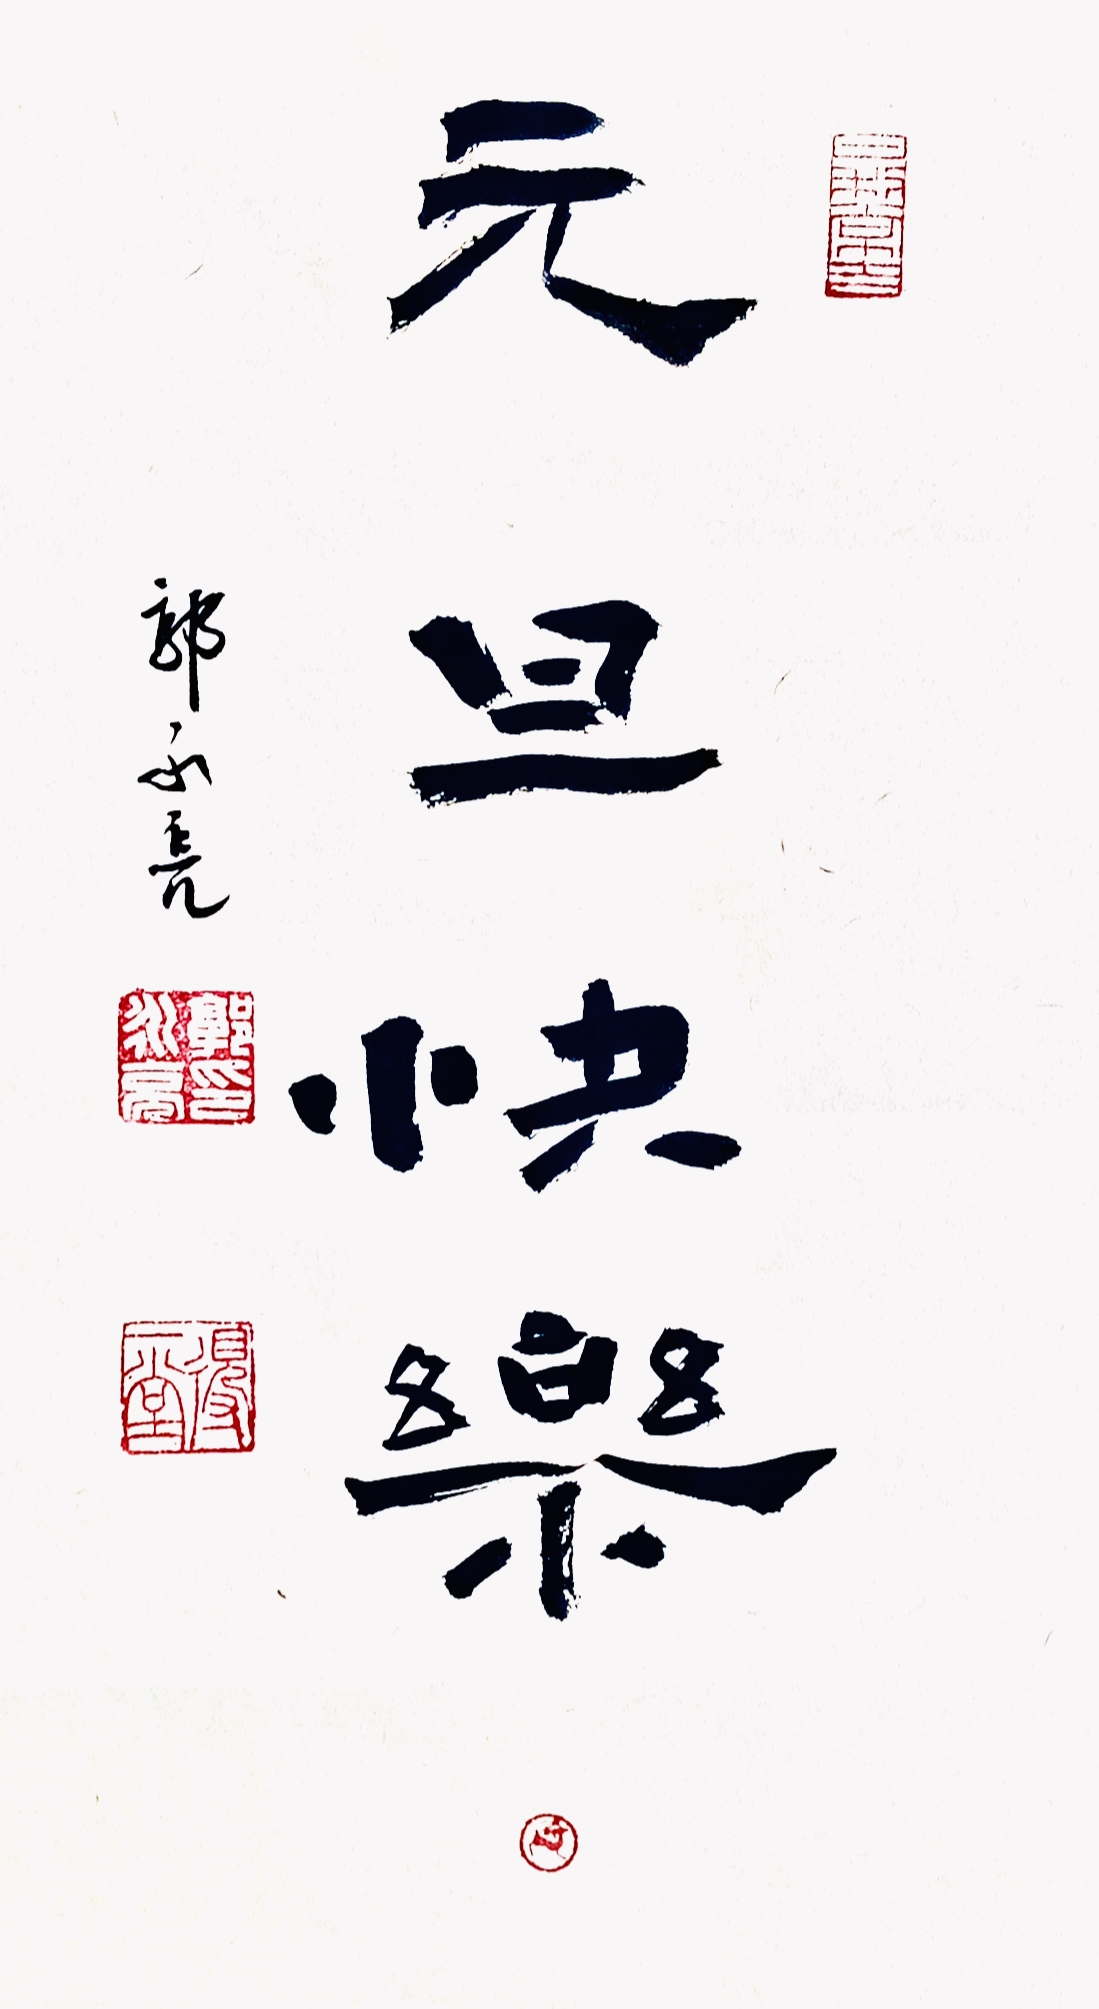 元旦快樂
郭永亮
郭印永亮